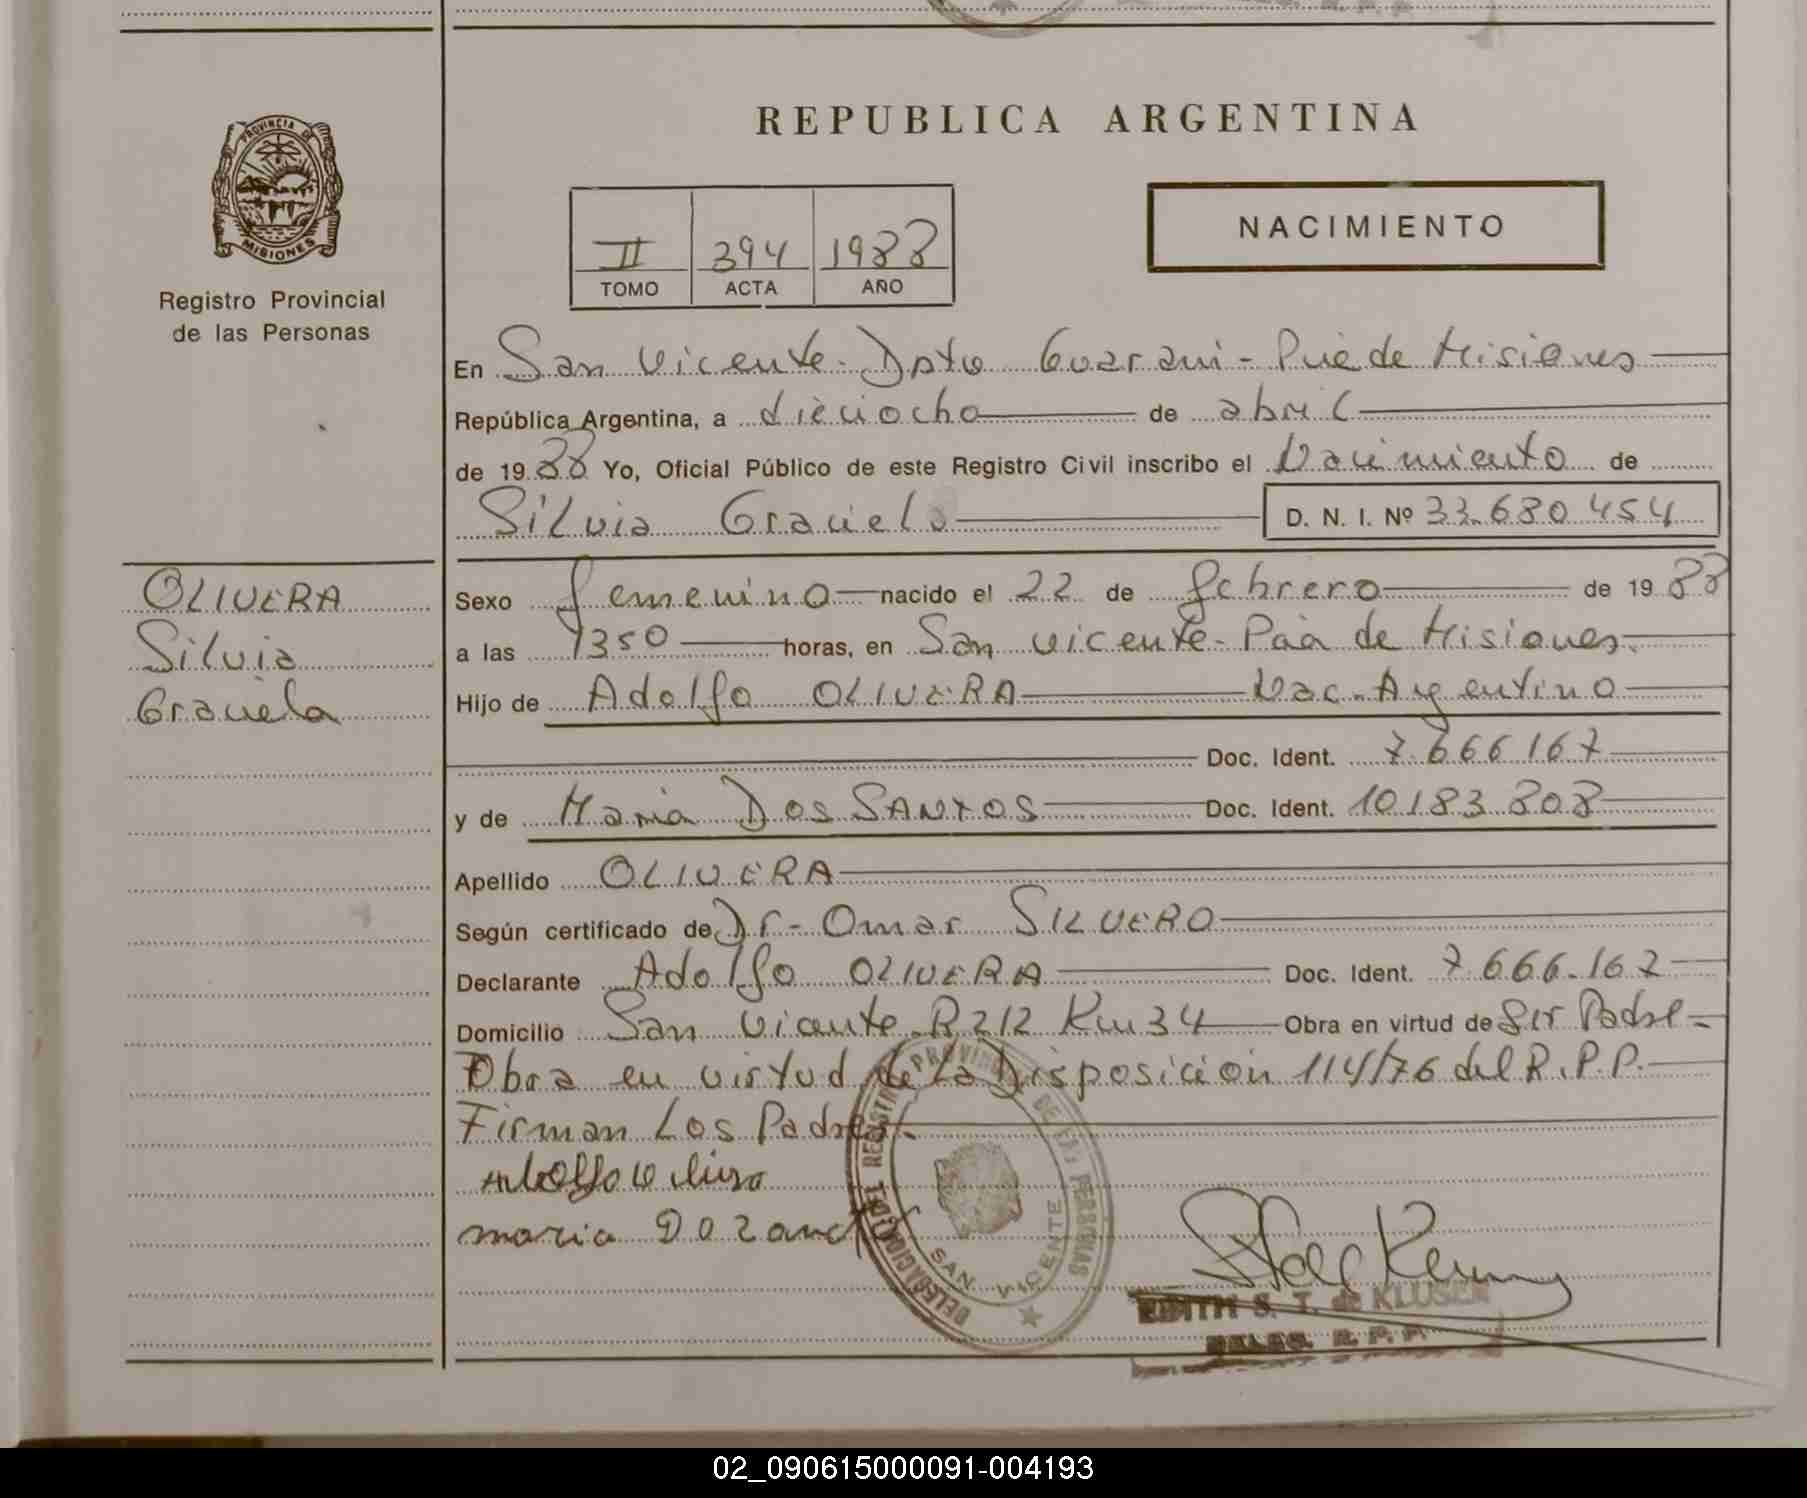 REPUBLICA ARGENTINA
PROVINCIA DE MISIONES
Registro Provincial
de las Personas
NACIMIENTO
II 394 1988
TOMO ACTA AÑO
En San Vicente - Dpto Guarani - Pcia de Misiones
República Argentina, a dieciocho de abril
de 1988 Yo, Oficial Público de este Registro Civil inscribo el Nacimiento de
Silvia Graciela D. N. I. Nº 33.680.454
OLIVERA
Silvia
Graciela
Sexo femenino nacido el 22 de febrero de 1988
a las 1350 horas, en San Vicente - Pcia de Misiones.
Hijo de Adolfo OLIVERA Nac. Argentino
Doc. Ident. 7.666.167
y de Maria DOS SANTOS Doc. Ident. 10.183.808
Apellido OLIVERA
Según certificado de Dr - Omar SILVERO
Declarante Adolfo OLIVERA Doc. Ident. 7.666.167
Domicilio San Vicente R 212 Km 34 Obra en virtud de Ser Padre -
Obra en virtud de la Disposición 114/76 del R.P.P.
Firman Los Padres.
Adolfo Olivera
maria Dozanct
REGISTRO PROVINCIAL DE LAS PERSONAS
DELEGACION
SAN VICENTE
EDITH S. T. de KLUSEN
DELEG. R. P. P.
02_090615000091-004193